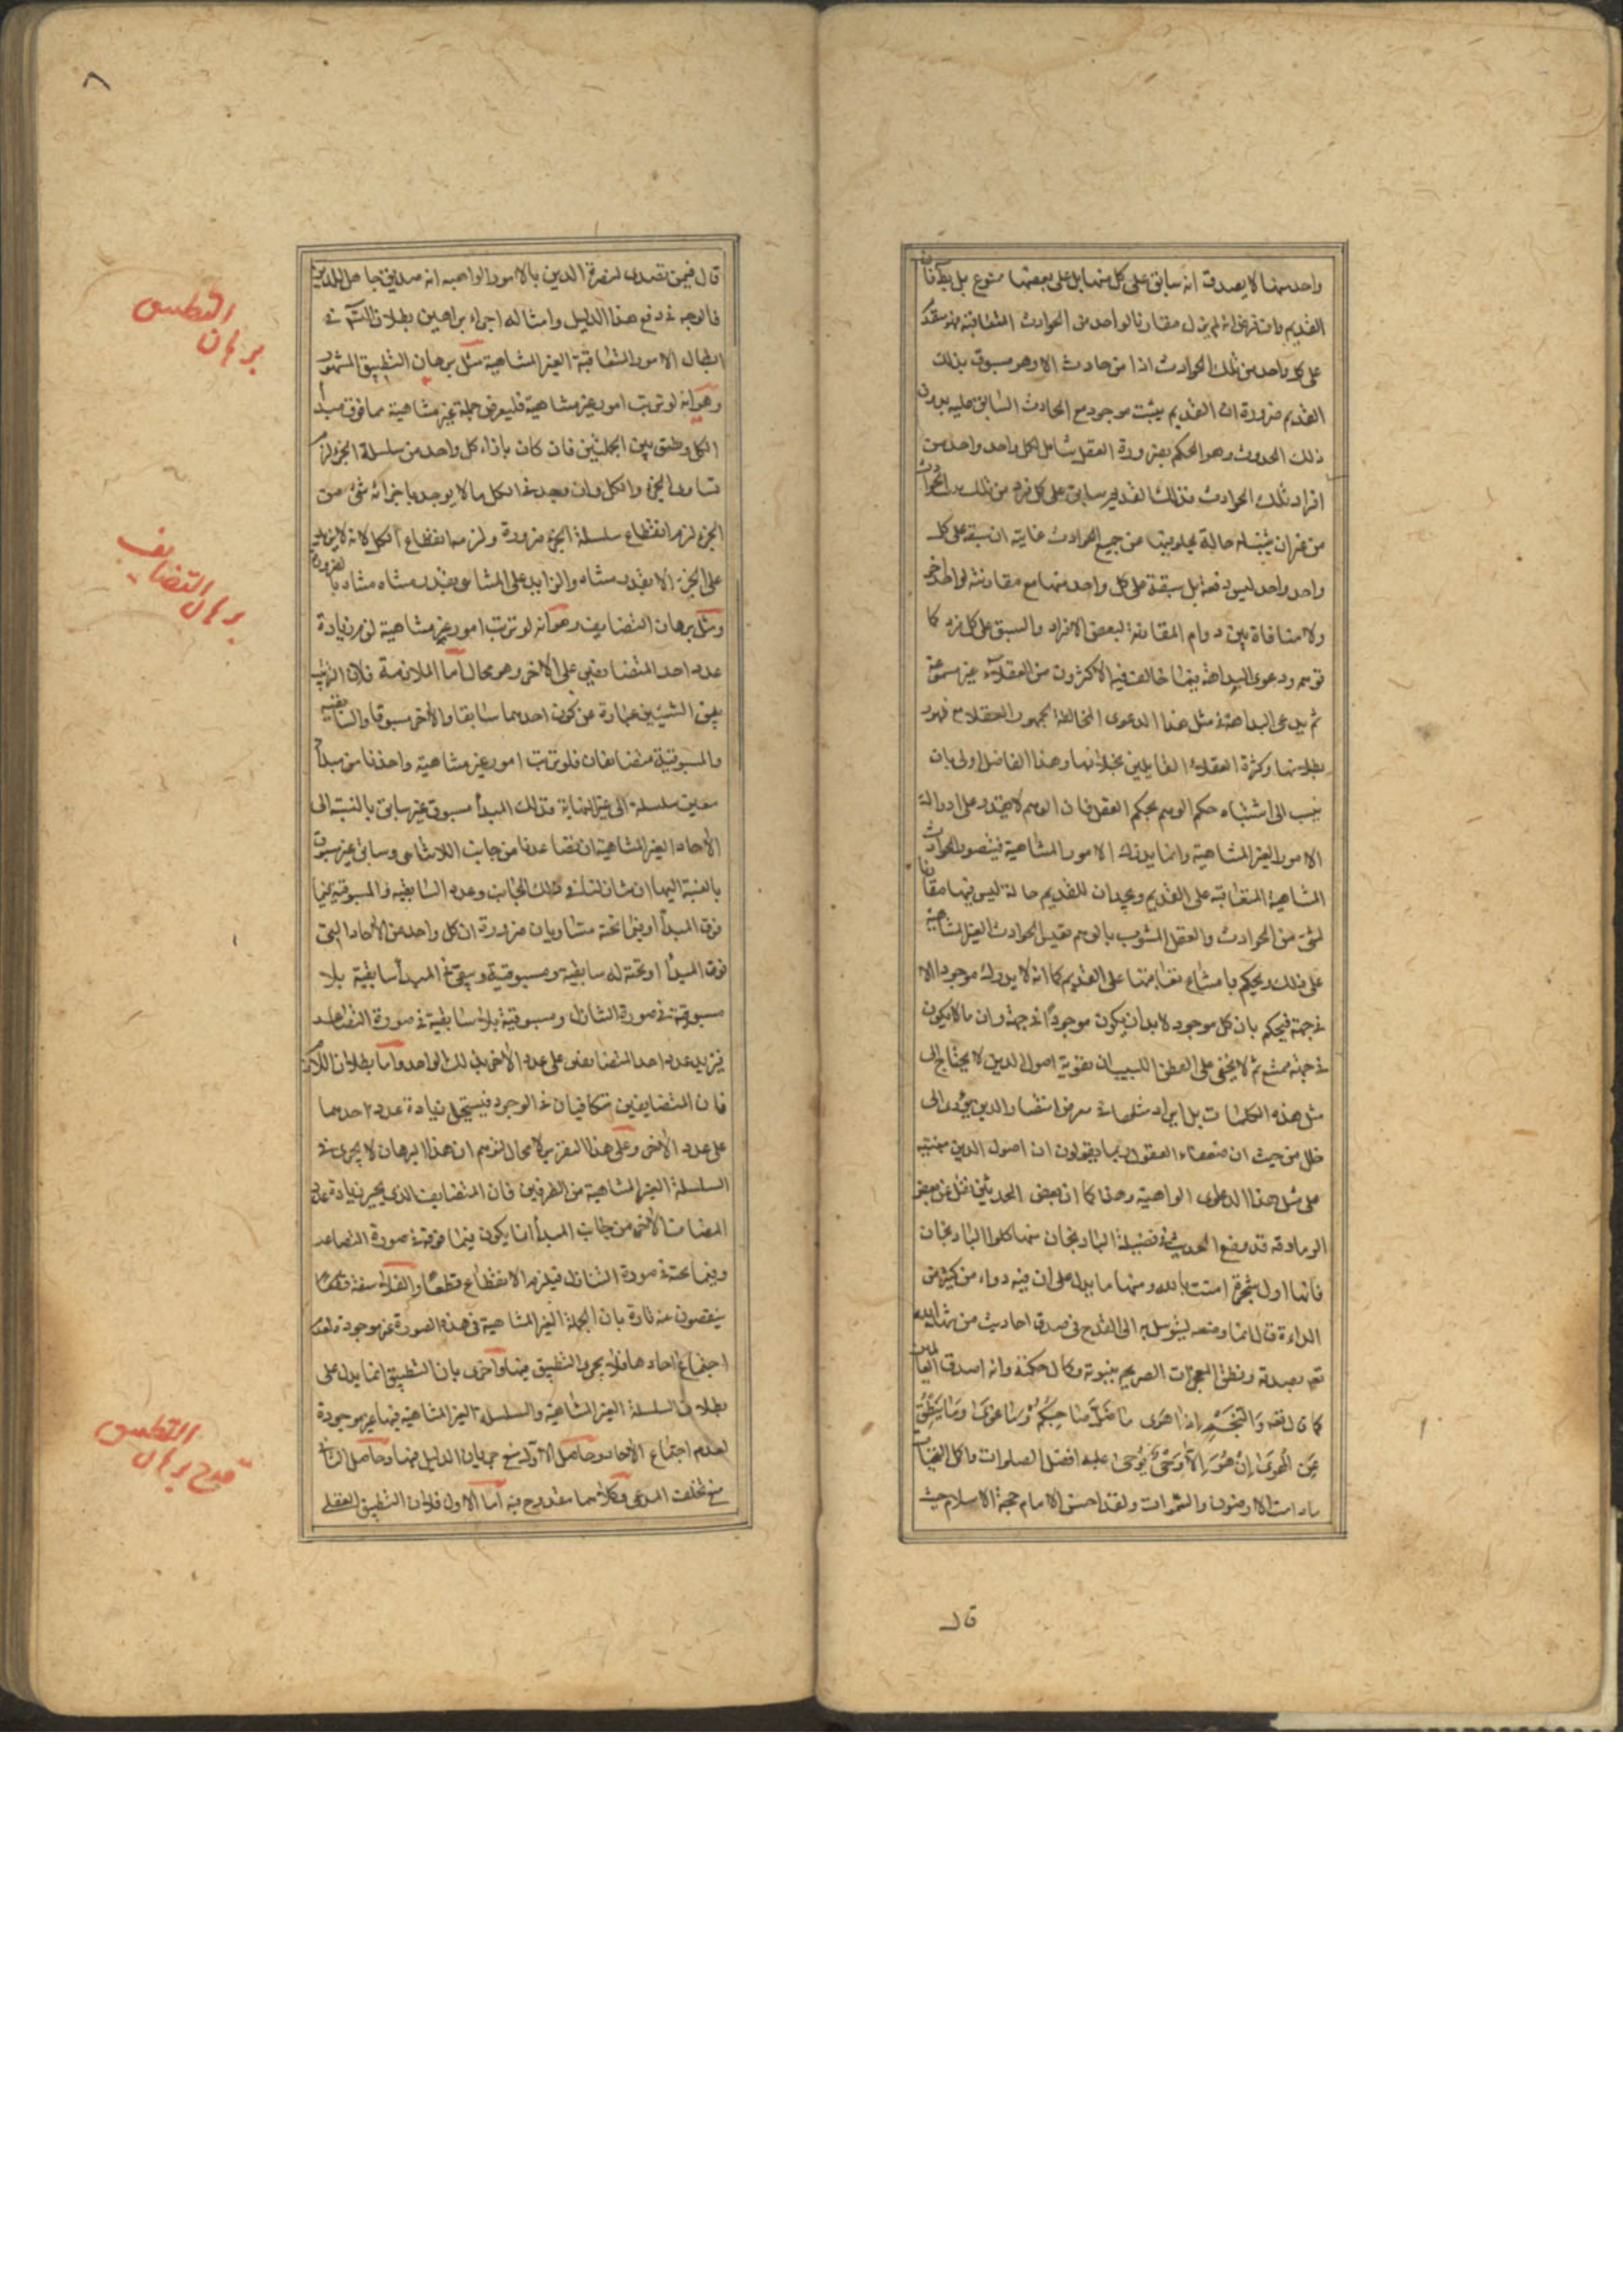 واحد منها لا يصدق انه سابق على كل منها بل على بعضها ممنوع بل يظهر آفاته
القديم وان فرض انه لم يزل مقارنا لواحد من الحوادث المتعاقبة فهو متقدم
على كل واحد من تلك الحوادث اذا من حادث الا وهو مسبوق بذلك
القديم ضرورة ان القديم يثبت موجود مع الحادث السابق عليه بدون
ذلك الحدوث وهو الحكم بضرورة العقل شامل لكل واحد واحد من
افراد تلك الحوادث فذلك القديم سابق على كل فرد من تلك الحوادث
من غير ان يثبت له حالة يخلو فيها من جميع الحوادث غايته ان سبقه على كل
واحد واحد ليس دفعة بل سبقه على كل واحد منها مع مقارنته لواحد آخر
ولا منافاة بين دوام المقارنة لبعض الافراد والسبق على كل فرد كما
توهم ودعوى البداهة فيما خالف فيه الاكثرون من العقلاء غير مسموعة
ثم يدعى البداهة في مثل هذا الدعوى المخالفة لجمهور العقلاء مع ظهور
بطلانها وكثرة العقلاء القايلين بخلافها وهذا الفاضل اولى بان
ينسب الى اشتباه حكم الوهم بحكم العقل فان الوهم لا يقدر على ادراك
الامور الغير المتناهية وانما يدرك الامور المتناهية فيتصور الحوادث
المتناهية المتعاقبة على القديم ويجد ان للقديم حالة ليس فيها مقارنا
لشئ من الحوادث والعقل المشوب بالوهم يقيس الحوادث الغير المتناهية
على ذلك ويحكم بامتناع تعاقبها على القديم كما انه لا يدرك موجودا الا
في جهة فيحكم بان كل موجود لا بد ان يكون موجودا في جهة وان ما لا يكون
في جهة ممتنع ثم لا يخفى على الفطن اللبيب ان تقوية اصول الدين لا يحتاج الى
مثل هذه الكلمات بل ايراد مثلها في معرض انتصار الدين يؤدى الى
خلل من حيث ان ضعفاء العقول ربما يقولون ان اصول الدين مبتنية
على مثل هذا الدعوى الواهية وهذا كما ان بعض المحدثين نقل عن بعض
الزنادقة قد وضع الحديث في فضيلة الباذنجان منها كلوا الباذنجان
فانها اول شجرة امنت بالله ومنها ما يدل على ان فيه دواء من كثير من
الداء قال انما وضعه ليتوسل به الى القدح في صدق احاديث من شهد الله
تعالى بصدقه ونطق المعجزات الصريح بنبوته وكمال حكمته وانه اصدق القائلين
كما قال الله وَالنَّجْمِ اِذَا هَوَى مَا ضَلَّ صَاحِبُكُمْ وَمَا غَوَى وَمَا يَنْطِقُ
عَنِ الْهَوَى اِنْ هُوَ اِلَّا وَحْيٌ يُوحَى عليه افضل الصلوات واكمل التحيات
ما دامت الارضون والسموات ولقد احسن الامام حجة الاسلام حيث
قال
٨
قال فيمن تصدى لنصرة الدين بالامور الواهية انه صديق جاهل للدين
فالوجه في دفع هذا الدليل وامثاله اجراء براهين بطلان التسلسل في
ابطال الامور المتعاقبة الغير المتناهية مثل برهان التطبيق المشهور
وهو انه لو ترتب امور غير متناهية فليفرض جملة غير متناهية مما فوق مبدأ
الكل وطبق بين الجملتين فان كان بازاء كل واحد من سلسلة الجزء لزم
تساوى الجزء والكل وان وجد في الكل ما لا يوجد بازائه شئ من
الجزء لزم انقطاع سلسلة الجزء ضرورة ولزم منه انقطاع الكل لانه لا يزيد
على الجزء الا بقدر متناه والزايد على المتناهى بقدر متناه متناه بالضرورة
ومثل برهان التضايف وهو انه لو ترتب امور غير متناهية لزم زيادة
عدد احد المتضايفين على الاخر وهو محال اما الملازمة فلان الترتيب
بين الشيئين عبارة عن كون احدهما سابقا والآخر مسبوقا والسابقية
والمسبوقية متضايفان فلو ترتب امور غير متناهية واخذنا من مبدأ
معين سلسلة الى غير النهاية فذلك المبدأ مسبوق غير سابق بالنسبة الى
الآحاد الغير المتناهية ان تصاعدنا من جانب اللاتناهى وسابق غير مسبوق
بالنسبة اليها ان تنازلنا من ذلك الجانب وعدد السابقية والمسبوقية فيما
فوق المبدأ او فيما تحته متساويان ضرورة ان كل واحد من الآحاد التى
فوق المبدأ او تحته له سابقية ومسبوقية ويبقى في المبدأ سابقية بلا
مسبوقية في صورة التنازل ومسبوقية بلا سابقية في صورة التصاعد
فيزيد عدد احد المتضايفين على عدد الاخر بذلك الواحد واما بطلان اللازم
فان المتضايفين متكافيان في الوجود فيستحيل زيادة عدد احدهما
على عدد الآخر وعلى هذا التقرير لا مجال لتوهم ان هذا البرهان لا يجرى في
السلسلة الغير المتناهية من الطرفين فان المتضايف الذى يجبر زيادة عدد
المضايف الآخر من جانب المبدأ انما يكون فيما فوقه في صورة التصاعد
وفيما تحته في صورة التنازل فيلزم الانقطاع قطعا والفلاسفة قد
ينقصون عنه تارة بان الجملة الغير المتناهية في هذه الصورة غير موجودة لعدم
اجتماع احادها فلا يجرى التطبيق فيها واخرى بان التطبيق انما يدل على
بطلان السلسلة الغير المتناهية والسلسلة الغير المتناهية فيها غير موجودة
لعدم اجتماع الآحاد وحاصل الاول منع جريان الدليل فيها وحاصل الثانى
منع تخلف المدعى وكلاهما مقدوح فيه اما الاول فلان التطبيق العقلى
برهان التطبيق
برهان التضايف
قدح برهان التطبيق